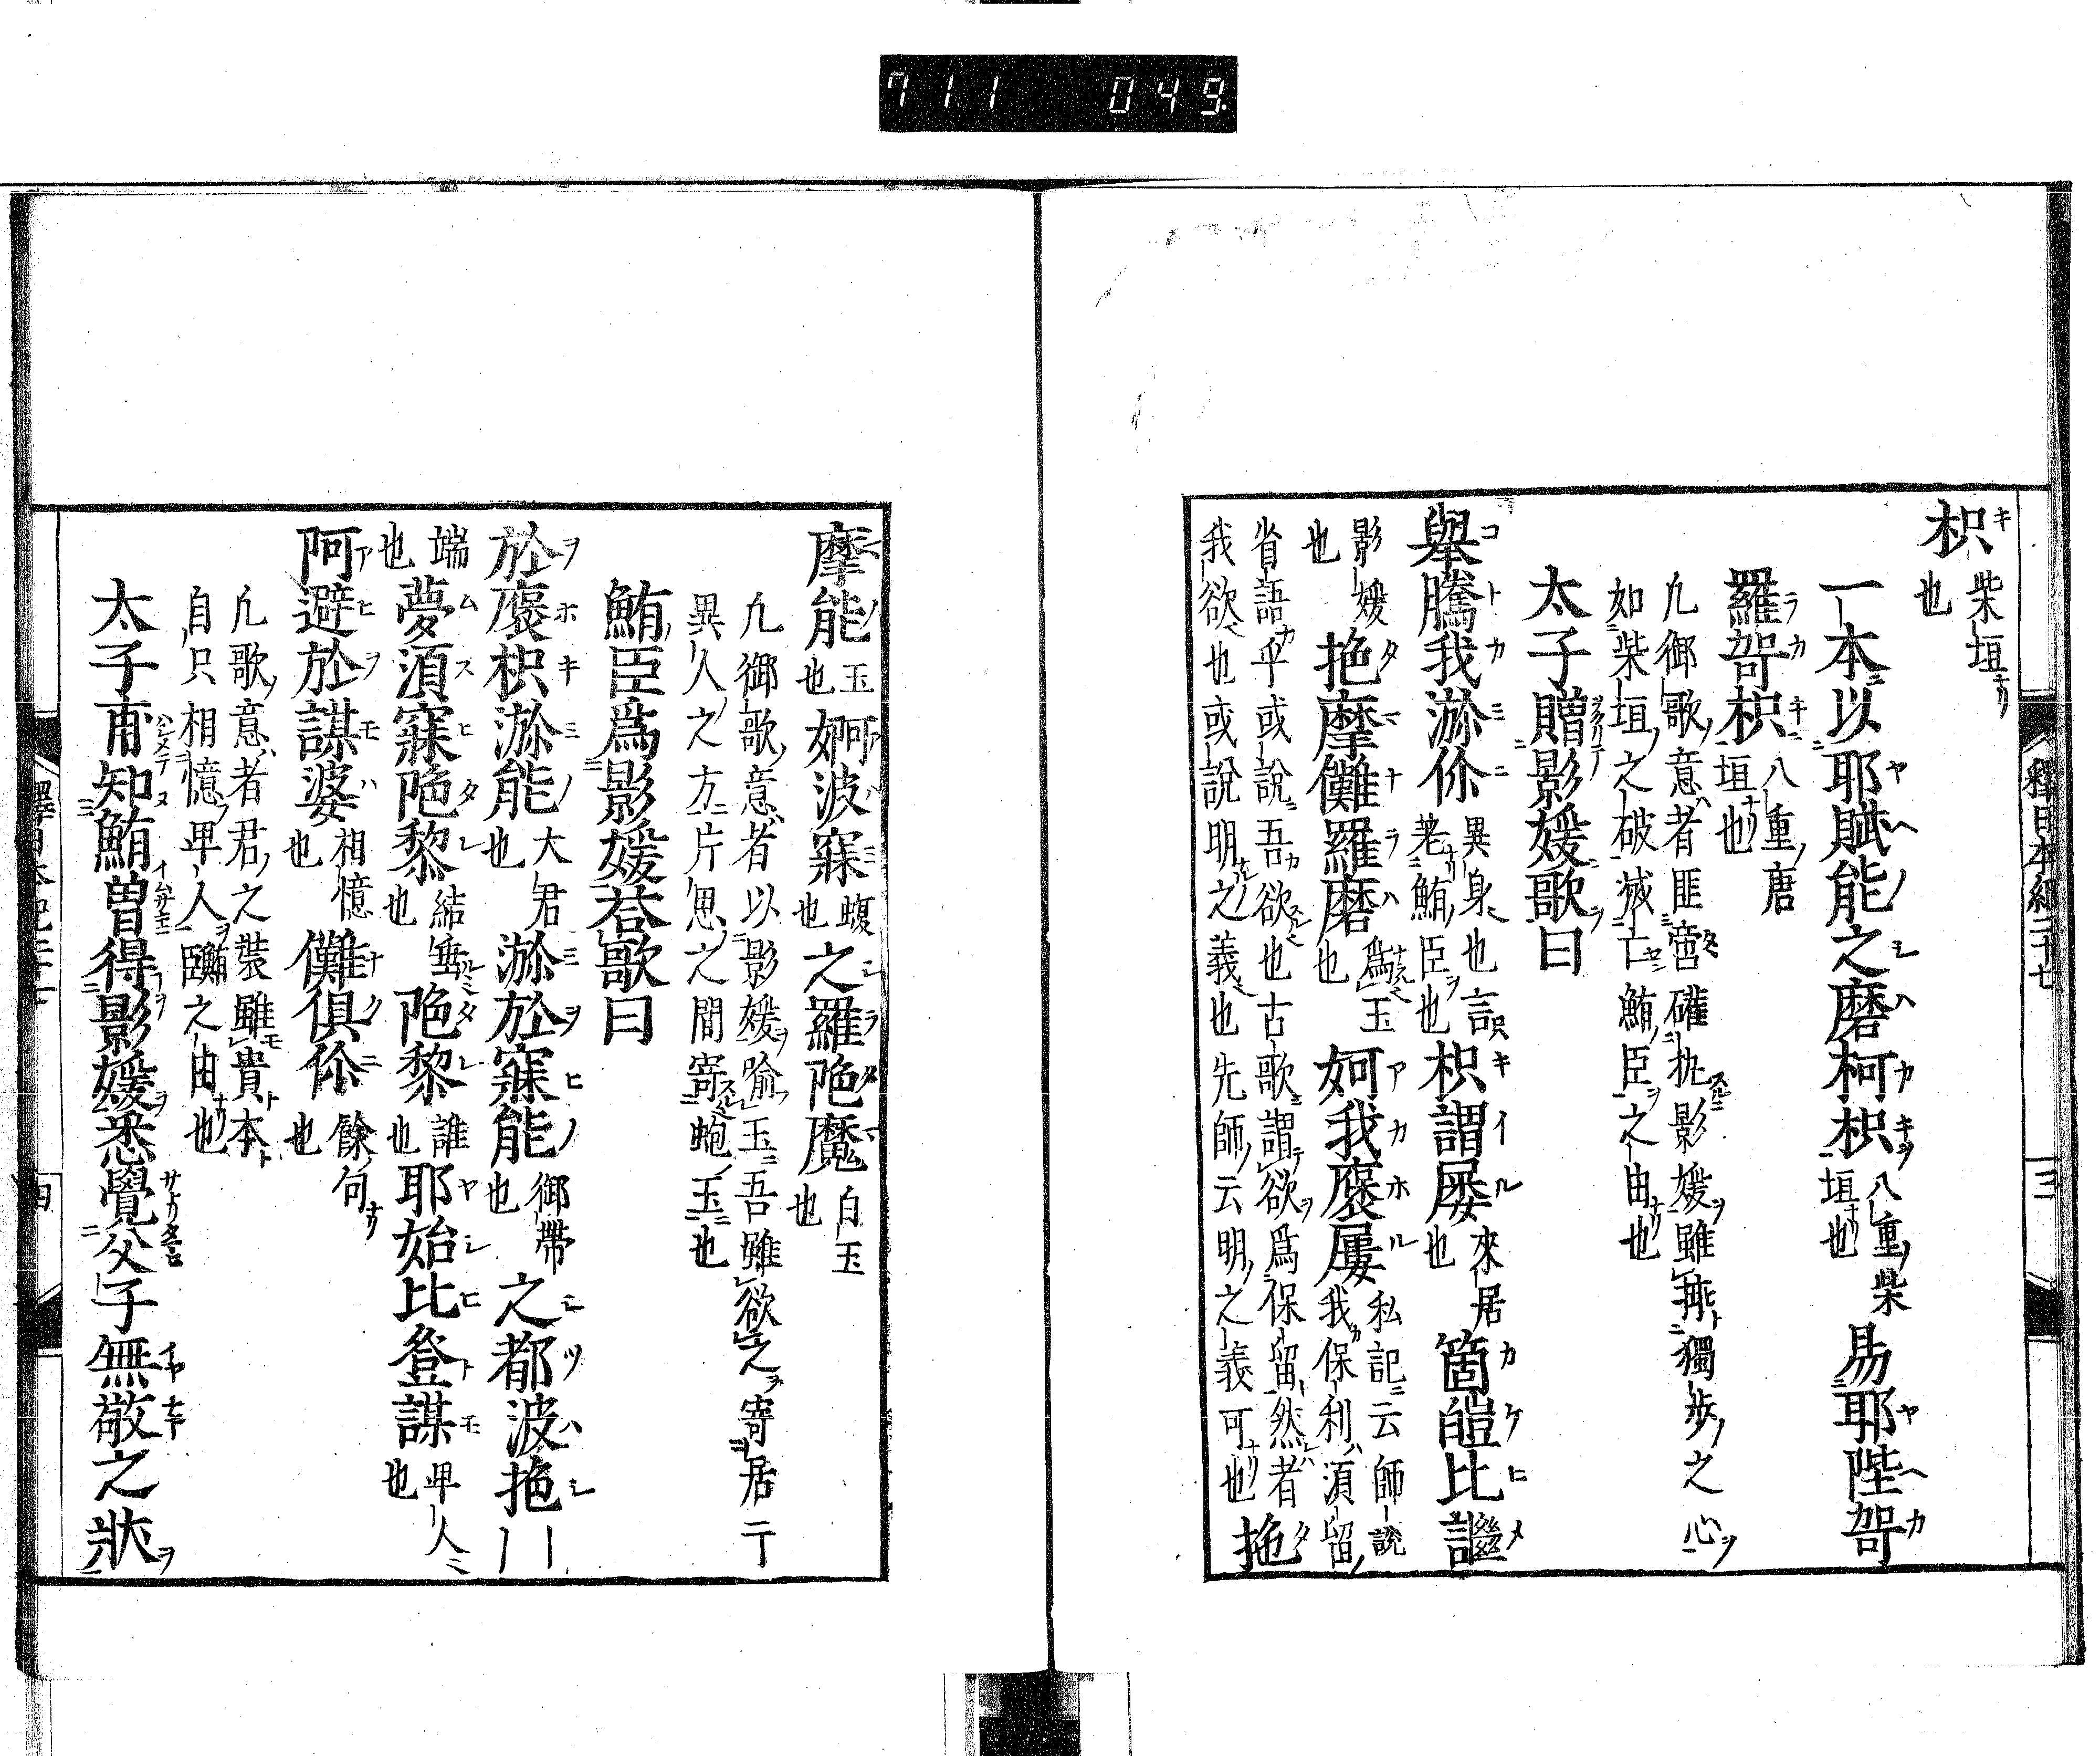 911 049
釋日本紀二十七
三
枳 柴垣也
一本以耶賦能之磨柯枳 八重柴垣也 易耶陛哿
羅哿枳 八重唐垣也
凡御歌意者匪啻確執影媛雖挑獨歩之心
如柴垣之破滅亡鮪臣之由也
太子贈影媛歌曰
舉騰我瀰你 異身也言老鮪臣也 枳謂屡 來居也 箇皚比謎
影媛也 拖摩儺羅磨 爲玉也 婀我褒屢 私記云師説我保利湏留
省語乎或説吾欲也古歌謂欲爲保留然者
我欲也或説明之義也先師云明之義可也 拖
摩能 玉也 婀波寐 蝮也 之羅陁魔 白玉也
凡御歌意者以影媛喩玉吾雖欲之寄居于
異人之方片思之間寄蚫玉也
鮪臣爲影媛荅歌曰
於褒枳瀰能 大君也 瀰於寐能 御帶也 之都波拖
端也 夢湏寐陁黎 結垂也 陁黎 誰也 耶始比登謀 甼人也
阿避於謀婆 相憶也 儺俱你 餘句也
凡歌意者君之裝雖貴本
自只相憶甼人鮪臣之由也
太子甫知鮪曽得影媛悉覺父子無敬之狀
四